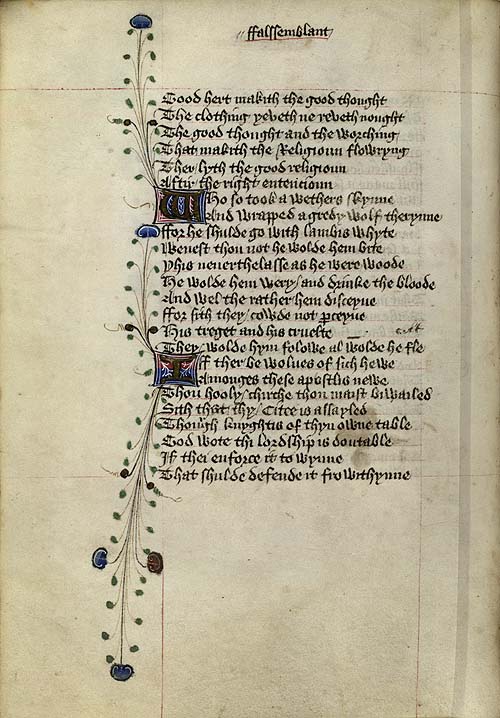 ffalssemblant
Good hert makith the good thought
The clothing yeveth ne reveth nought
The good thought and the worching
That makith the Religioun flowryng
Ther lyth the good religioun
Aftir the right entencioun
Who so took a wethers skynne
And wrapped a gredy wolf therynne
ffor he shulde go with lambis whyte
Wenest thou not he wolde hem bite
Yhis neverthelasse as he were woode
He wolde hem wery and drinke the bloode
And wel the rather hem disceyue
ffor sith they cowde not ꝑceyue
His treget and his cruelte
They wolde hym folowe al wolde he fle
If ther be wolues of sich hewe
Amonges these apostlis newe
Thou hooly chirche thou maist biwailed
Sith that thy Citee is assayled
Though knyghtis of thyn owne table
God wote thi lordship is doutable
If thei enforce it to wynne
That shulde defende it fro withynne